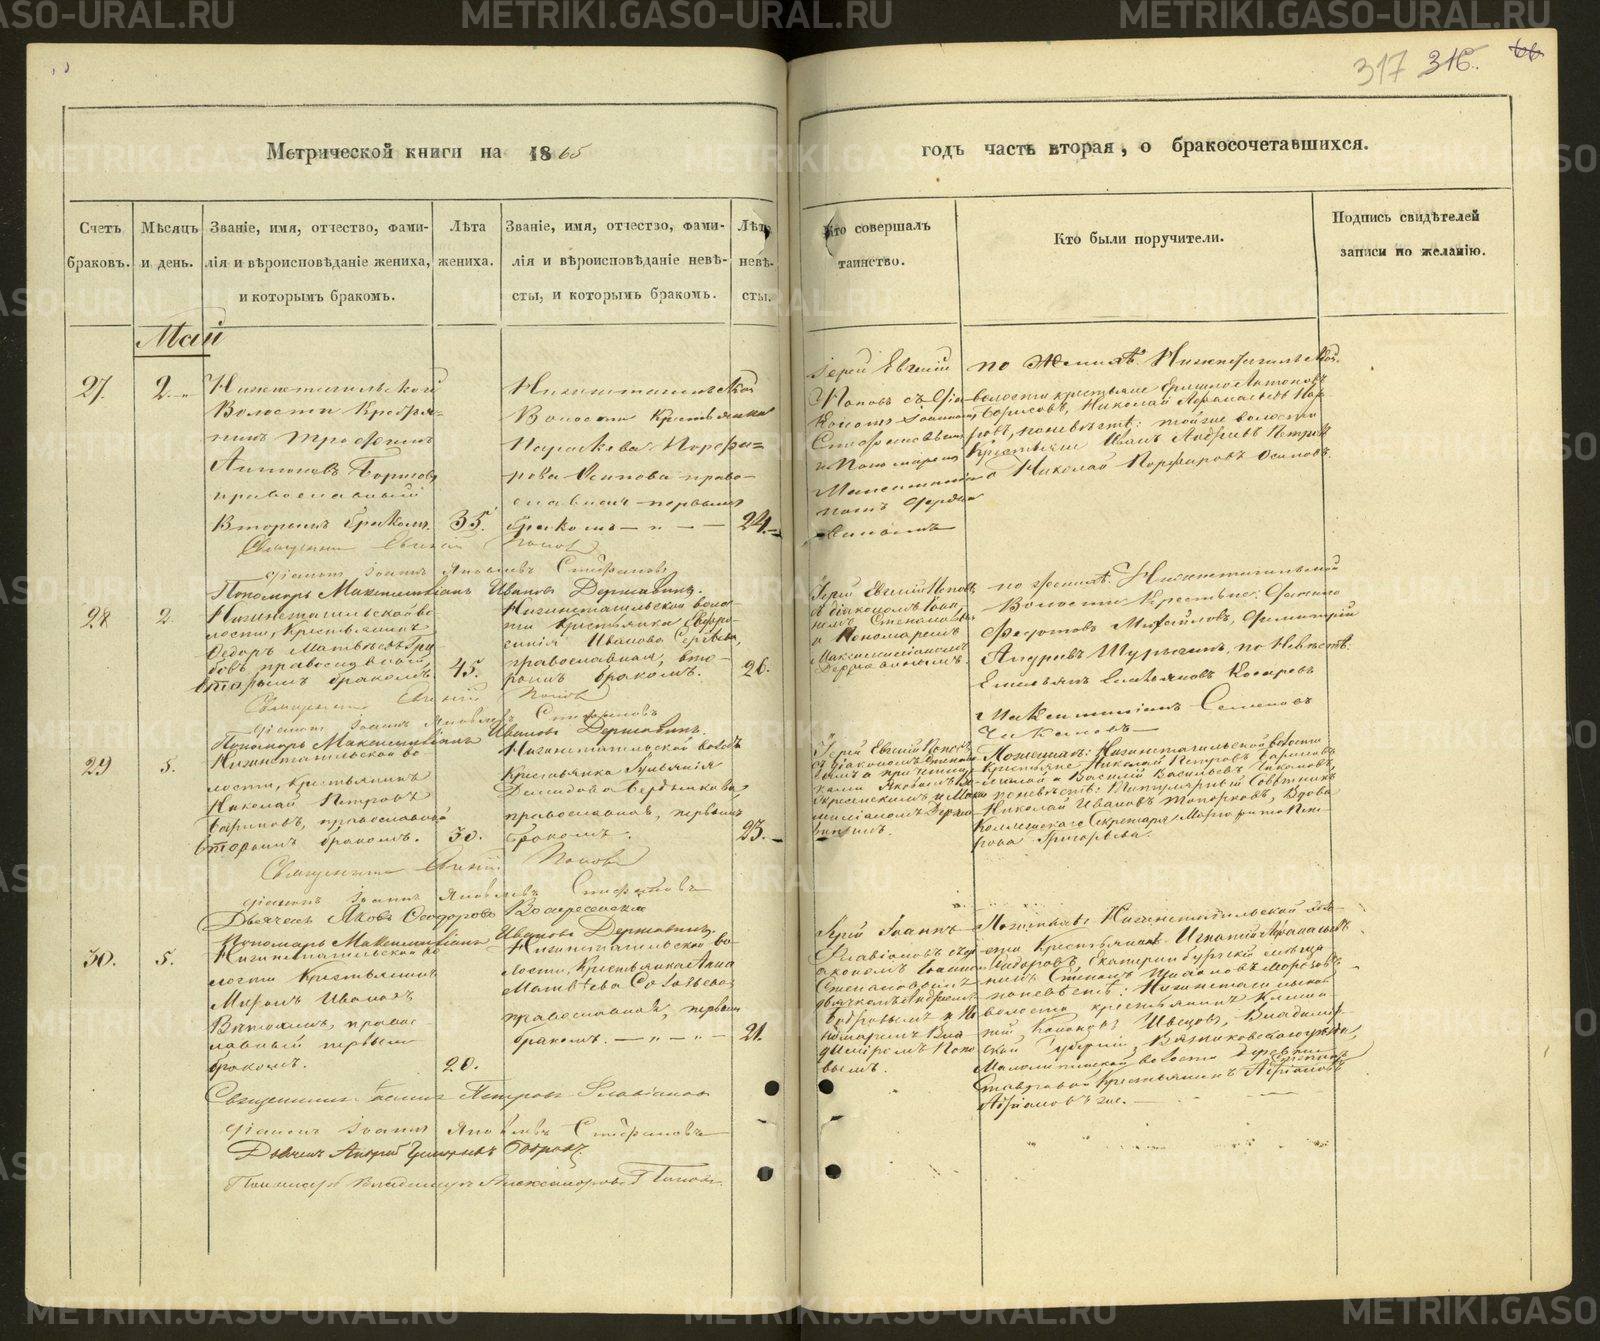 317 316. 66
Метрической книги на 1865
годъ часть вторая, о бракосочетавшихся.
Счетъ браковъ.
Мѣсяцъ и день.
Званіе, имя, отчество, фами-
лія и вѣроисповѣданіе жениха,
и которымъ бракомъ.
Лѣта
жениха.
Званіе, имя, отчество, фами-
лія и вѣроисповѣданіе невѣ-
сты, и которымъ бракомъ.
Лѣта
невѣ-
сты.
Кто совершалъ
таинство.
Кто были поручители.
Подпись свидѣтелей
записи по желанію.
Май
27. 2.
Нижнетагильской
Волости Крестья-
нинъ Трофимъ
Антоновъ Борисовъ
православный
Вторымъ бракомъ. 35.
Нижнетагильской
Волости Крестьянка
Параскева Порфи-
рова Осипова право-
славная первымъ
бракомъ 24.
Іерей Евгеній
Поповъ съ Діа-
кономъ Іоанномъ
Стефановымъ
и Пономаремъ
Максимиліа-
номъ Держа
винымъ
по женихѣ: Нижнетагильской
волости крестьяне Ермило Антоновъ
Борисовъ, Николай Афанасьевъ
по невѣстѣ: тойже волости
Крестьяне Иванъ Андреевъ Петровъ
и Николай Порфировъ Осиповъ.
Священникъ Евгеній Поповъ
Діаконъ Іоаннъ Яковлевъ Стефановъ
Пономарь Максимиліанъ Ивановъ Державинъ.
28 2.
Нижнетагильской во-
лости, Крестьянинъ
Ѳедоръ Матвѣевъ Гри
бовъ православный,
вторымъ бракомъ. 45.
Нижнетагильской воло-
сти крестьянка Евфро-
синія Иванова Сергѣева,
православная, вто-
рымъ бракомъ. 26.
Іерей Евгеній Поповъ
съ діакономъ Іоан-
номъ Стефановымъ
и Пономаремъ
Максимиліаномъ
Державинымъ.
по женихѣ: Нижнетагильской
Волости Крестьяне:
Федотовъ Михайловъ, Димитрій
Андреевъ Шурыгинъ, по Невѣстѣ:
Емельянъ Емельяновъ Комаровъ
и Максимиліанъ Семеновъ
Чикановъ
Священникъ Евгеній Поповъ
Діаконъ Іоаннъ Яковлевъ Стефановъ
Пономарь Максимиліанъ Ивановъ Державинъ.
29 5.
Нижнетагильской во-
лости, Крестьянинъ
Николай Петровъ
православный
вторымъ бракомъ. 30.
Нижнетагильской волости
Крестьянка Іуліанія
Демидова Сердюкова,
православная, первымъ
бракомъ. 23.
Іерей Евгеній Поповъ
съ діакономъ Стефано-
вымъ и причетни-
ками Яковомъ Во-
скресенскимъ и Макси
миліаномъ Держа
винымъ.
По женихѣ: Нижнетагильской волости
Крестьяне Николай Петровъ
и Василій Васильевъ Чиканов,
по невѣстѣ: Титулярный Совѣтникъ
Николай Ивановъ Топорковъ, Вдова
Коллежскаго Секретаря Маргарита Пет-
рова Григорьева.
Священникъ Евгеній Поповъ
Діаконъ Іоаннъ Яковлевъ Стефановъ
Дьячекъ Яковъ Ѳеодоровъ Воскресенскій
Пономарь Максимиліанъ Ивановъ Державинъ.
30. 5.
Нижнетагильской во
лости Крестьянинъ
Миронъ Ивановъ
Вяткинъ, право-
славный первымъ
бракомъ. 20.
Нижнетагильской во-
лости, Крестьянка Анна
Матвѣева Соловьева
православная, первымъ
бракомъ. 21.
Іерей Іоаннъ
Славніновъ съ ді-
акономъ Іоанномъ
Стефановымъ
дьячкомъ Андреемъ
Бобровымъ и По
номаремъ Вла
диміромъ Попо
вымъ.
По женихѣ: Нижнетагильской Воло-
сти Крестьянинъ Игнатій Афанасьевъ
Сидоровъ, Екатеринбургскій мѣща-
нинъ Степанъ Ивановъ Морозовъ
по невѣстѣ: Нижнетагильской
волости крестьянинъ
Кононовъ Швецовъ, Владимір-
ской Губерніи, Вязниковскаго уѣзда,
волости деревни
Крестьянинъ Степанъ
Афіановъ
Священникъ Іоаннъ Петровъ Славніновъ
Діаконъ Іоаннъ Яковлевъ Стефановъ
Дьячекъ Андрей Григорьевъ Бобровъ
Пономарь Владиміръ Александровъ Поповъ.
METRIKI.GASO-URAL.RU